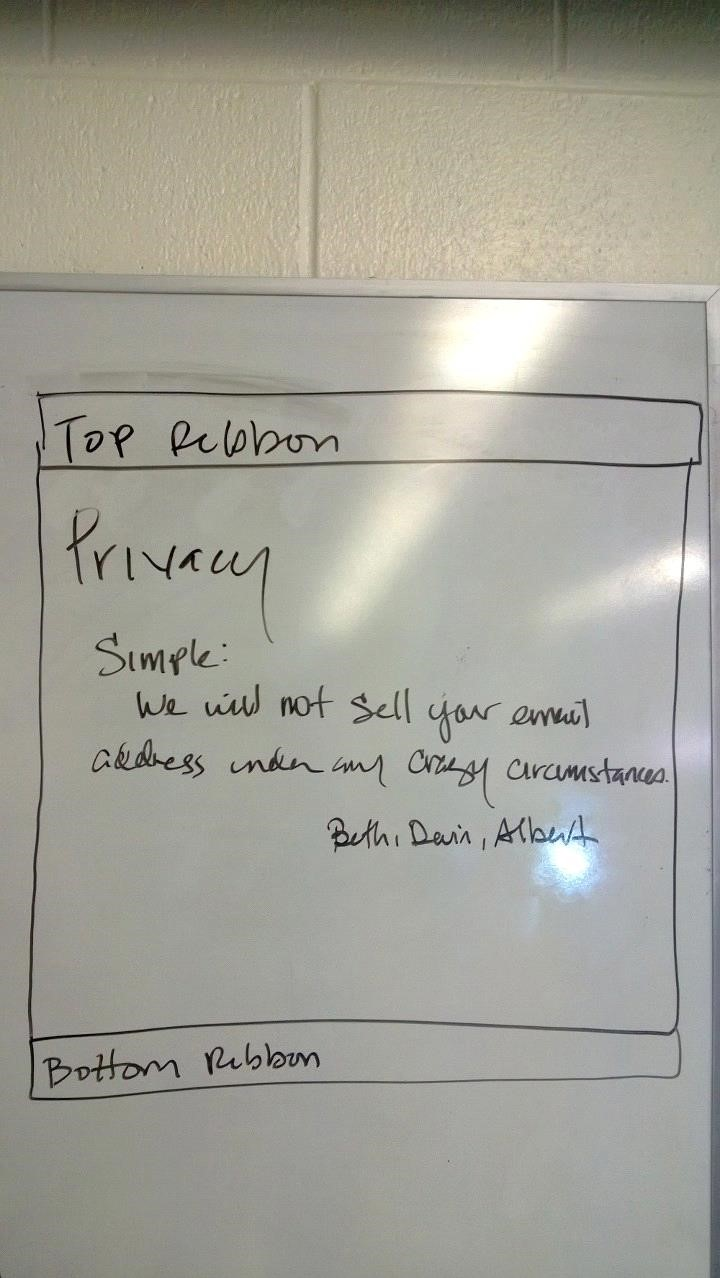 Top Ribbon
Privacy
Simple:
We will not sell your email
address under any crazy circumstances.
Beth, Devin, Albert
Bottom Ribbon